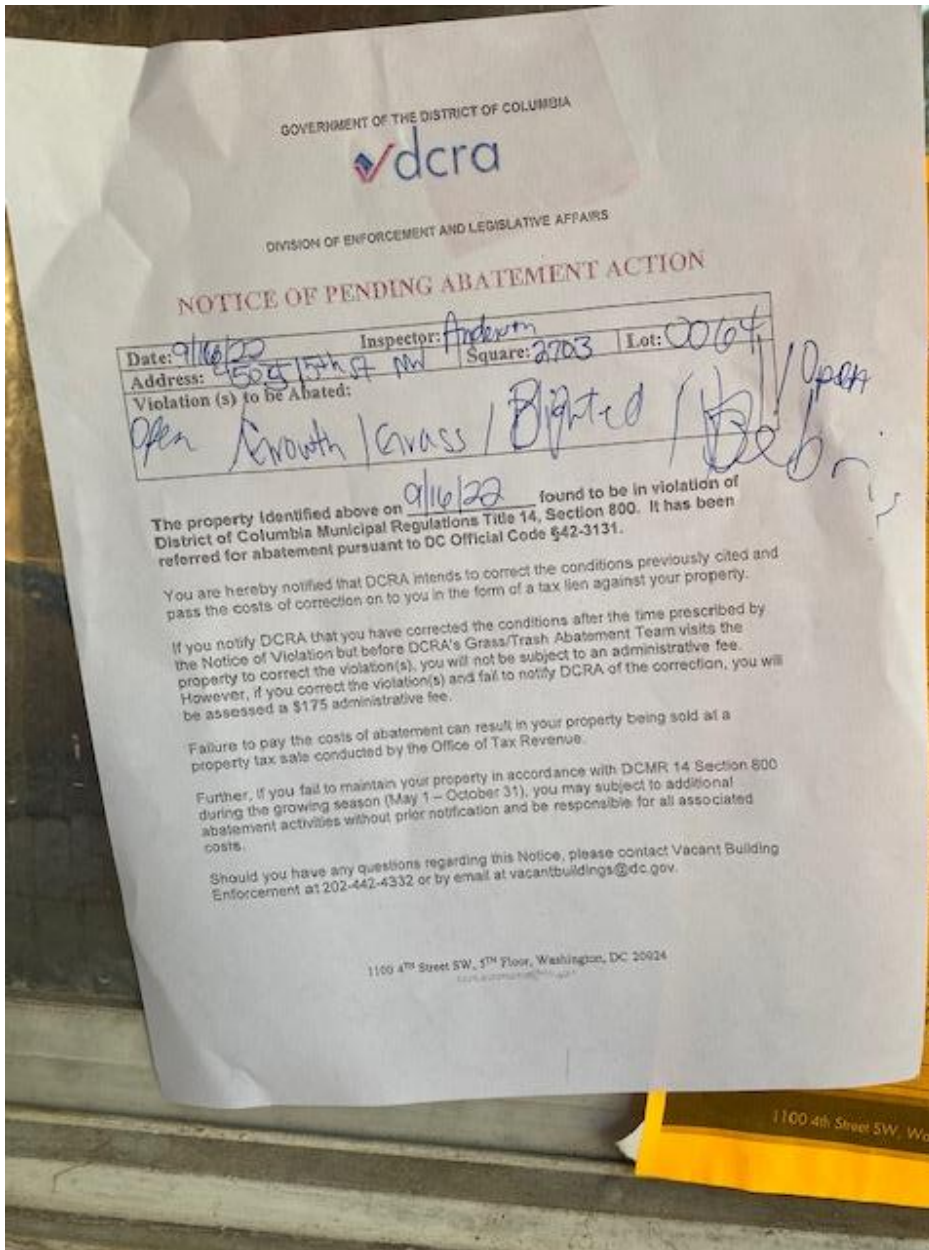 GOVERNMENT OF THE DISTRICT OF COLUMBIA
dcra
DIVISION OF ENFORCEMENT AND LEGISLATIVE AFFAIRS
NOTICE OF PENDING ABATEMENT ACTION
Date: 9/16/22 Inspector: Anderson
Address: 4505 15th St NW Square: 2703 Lot: 0064
Violation (s) to be Abated:
Open Growth / Grass / Blighted / Debris / Open
The property Identified above on 9/16/22 found to be in violation of
District of Columbia Municipal Regulations Title 14, Section 800. It has been
referred for abatement pursuant to DC Official Code §42-3131.
You are hereby notified that DCRA intends to correct the conditions previously cited and
pass the costs of correction on to you in the form of a tax lien against your property.
If you notify DCRA that you have corrected the conditions after the time prescribed by
the Notice of Violation but before DCRA's Grass/Trash Abatement Team visits the
property to correct the violation(s), you will not be subject to an administrative fee.
However, if you correct the violation(s) and fail to notify DCRA of the correction, you will
be assessed a $175 administrative fee.
Failure to pay the costs of abatement can result in your property being sold at a
property tax sale conducted by the Office of Tax Revenue.
Further, if you fail to maintain your property in accordance with DCMR 14 Section 800
during the growing season (May 1 – October 31), you may subject to additional
abatement activities without prior notification and be responsible for all associated
costs.
Should you have any questions regarding this Notice, please contact Vacant Building
Enforcement at 202-442-4332 or by email at vacantbuildings@dc.gov.
1100 4TH Street SW, 5TH Floor, Washington, DC 20024
1100 4th Street SW, Wa